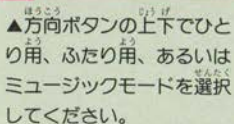 ▲方向ボタンの上下でひと
り用、ふたり用、あるいは
ミュージックモードを選択
してください。